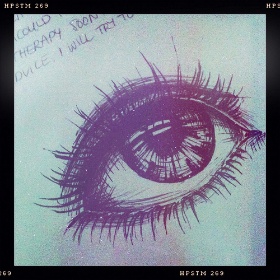 HPSTM 269
COULD
THERAPY SOON
DVICE. I WILL TRY TO
HPSTM 269